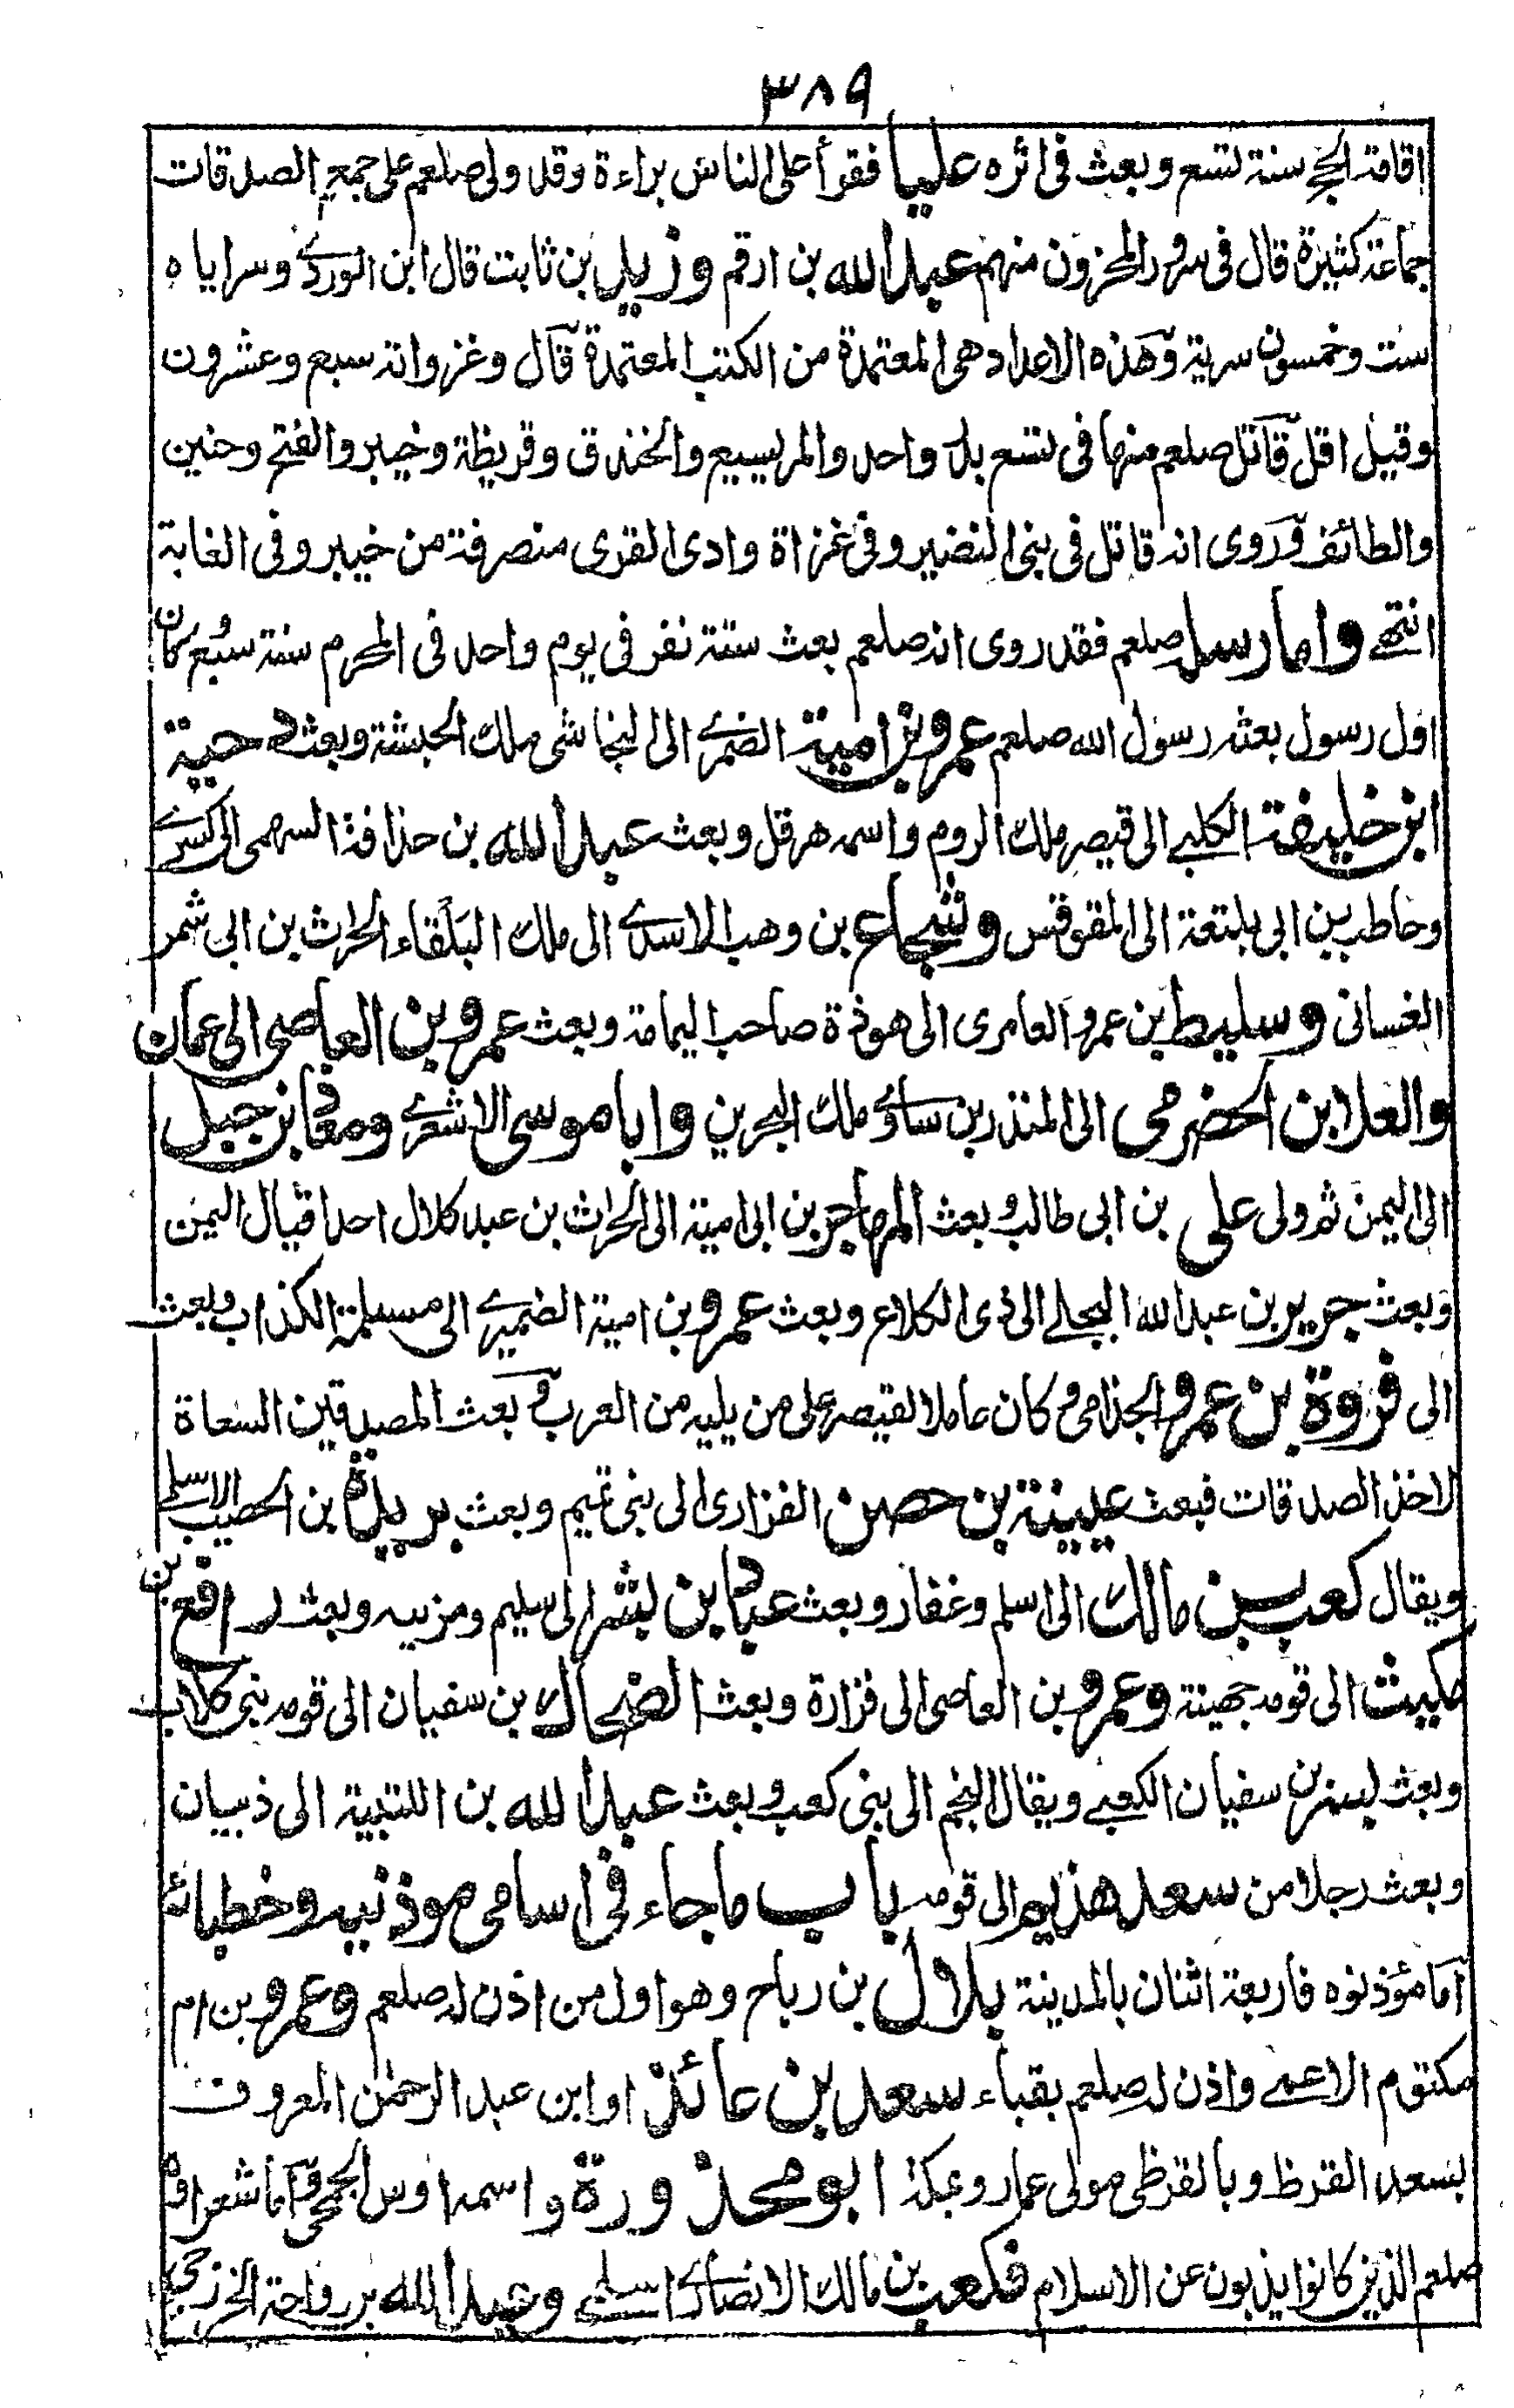 ٣٨٩
اقامة الحج سنة تسع وبعث فى اثره عليا فقرأ على الناس براءة وقد ولى صلعم على جمع الصدقات
جماعة كثيرة قال فى سرور المحزون منهم عبد الله بن ارقم وزيد بن ثابت قال ابن الوردى وسراياه
ست وخمسون سرية وهذه الاعداد هى المعتمدة من الكتب المعتمدة قال وغزواته سبع وعشرون
وقيل اقل قاتل صلعم منها فى تسع بدر واحد والمريسيع والخندق وقريظة وخيبر والفتح وحنين
والطائف وروى انه قاتل فى بنى النضير وفى غزاة وادى القرى منصرفة من خيبر وفى الغابة
انتهى واما رسله صلعم فقد روى انه صلعم بعث ستة نفر فى يوم واحد فى المحرم سنة سبع كان
اول رسول بعثه رسول الله صلعم عمرو بن امية الضمرى الى النجاشى ملك الحبشة وبعث دحية
ابن خليفة الكلبى الى قيصر ملك الروم واسمه هرقل وبعث عبد الله بن حذافة السهمى الى كسرى
وحاطب بن ابى بلتعة الى المقوقس وشجاع بن وهب الاسدى الى ملك البلقاء الحرث بن ابى شمر
الغسانى وسليط بن عمرو العامرى الى هوذة صاحب اليمامة وبعث عمرو بن العاصى الى عمان
والعلا ابن الحضرمى الى المنذر بن ساوى ملك البحرين وابا موسى الاشعرى ومعاذ بن جبل
الى اليمن ثم ولى على بن ابى طالب وبعث المهاجر بن ابى امية الى الحراث بن عبد كلال احد اقيال اليمن
وبعث جرير بن عبد الله البجلى الى ذى الكلاع وبعث عمرو بن امية الضميرى الى مسيلمة الكذاب وبعث
الى فروة بن عمرو الجذامى وكان عاملا لقيصر على من يليه من العرب وبعث المصدقين السعاة
لاخذ الصدقات فبعث عيينة بن حصن الفزارى الى بنى تميم وبعث بريدة بن الحصيب الاسلمى
ويقال كعب بن مالك الى اسلم وغفار وبعث عباد بن بشر الى سليم ومزينه وبعث رافع بن
مكيث الى قومه جهينة وعمرو بن العاصى الى فزارة وبعث الضحاك بن سفيان الى قومه بنى كلاب
وبعث بسر بن سفيان الكعبى ويقال النجم الى بنى كعب وبعث عبد الله بن اللتبية الى ذبيان
وبعث رجلا من سعد هذيم الى قومه باب ما جاء فى اسامى موذنيه وخطبائه
اما مؤذنوه فاربعة اثنان بالمدينة بلال بن رباح وهو اول من اذن له صلعم وعمرو بن ام
مكتوم الاعمى واذن له صلعم بقباء سعد بن عائذ او ابن عبد الرحمن المعروف
بسعد القرظ وبالقرظى مولى عمار وبمكة ابو محذورة واسمه اوس الجمحى واما شعراؤه
صلعم الذين كانوا يذبون عن الاسلام فكعب بن مالك الانصارى اسلمى وعبد الله بن رواحة الخزرجى